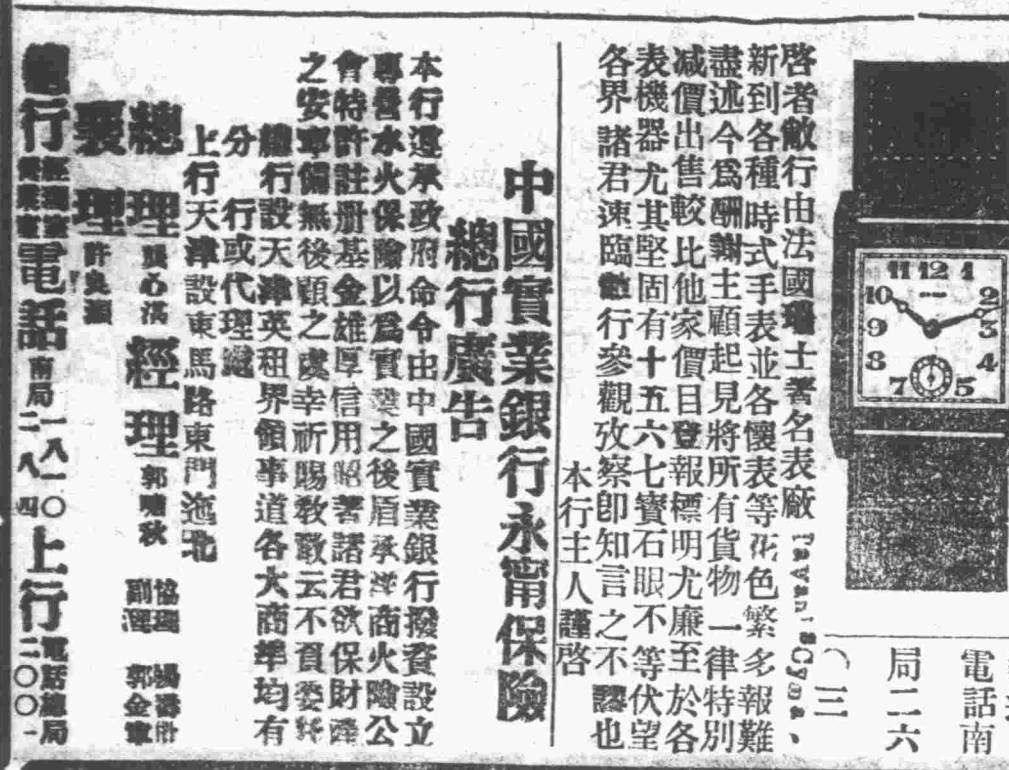 電話南
局二六
〇三
啓者敝行由法國瑞士著名表廠 Tavan's Cyma、
新到各種時式手表並各懷表等花色繁多報難
盡述今爲酬謝主顧起見將所有貨物一律特別
减價出售較比他家價目登報標明尤廉至於各
表機器尤其堅固有十五六七寶石眼不等伏望
各界諸君速臨敝行參觀攷察卽知言之不謬也
本行主人謹啓
中國實業銀行永甯保險
總行廣告
本行遵承政府命令由中國實業銀行撥資設立
專營水火保險以爲實業之後盾承 商火險公
會特許註册基金雄厚信用昭著諸君欲保財產
之安寧備無後顧之虞幸祈賜敎敢云不負委
總行設天津英租界領事道各大商埠均有
分行或代理處
上行天津設東馬路東門迤北
總理 龔心湛 經理 郭嘯秋 協理
襄理 許良 副理 郭金
總行 電話南局 一八一〇 二八四 上行電話總局 二〇〇一
11 12 1
10 2
9 3
8 4
7 5